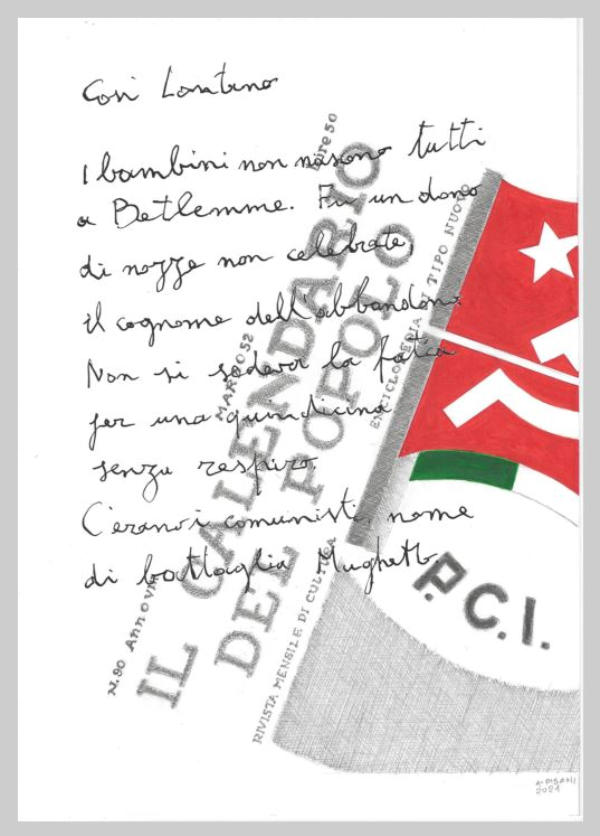 Così Lontano
I bambini non nascono tutti
a Betlemme. Fu un dono
di nozze non celebrate,
il cognome dell'abbandono.
Non si sedava la fatica
per una quindicina
senza respiro.
C'erano i comunisti, nome
di battaglia Mughetto.
N.90 Anno VIII
MARZO 52
Lire 50
IL CALENDARIO
DEL POPOLO
RIVISTA MENSILE DI CULTURA
ENCICLOPEDIA DI TIPO NUOVO
P.C.I.
2021